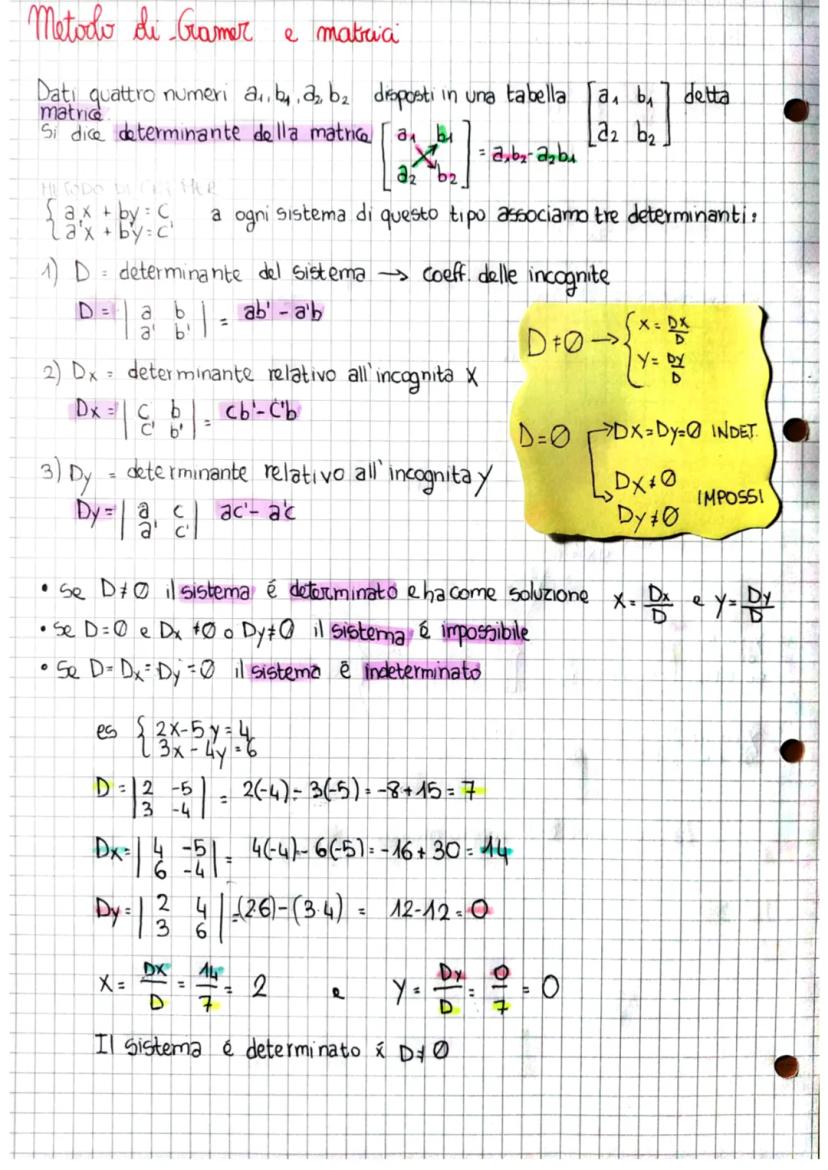 Metodo di Cramer e matrici
Dati quattro numeri a₁, b₁, a₂ b₂ disposti in una tabella [a₁ b₁ detta
matrice. a₂ b₂]
Si dice determinante della matrice [a₁ b₁
a₂ b₂] = a₁b₂-a₂b₁
METODO DI CRAMER
{ax + by = c a ogni sistema di questo tipo associamo tre determinanti:
a'x + b'y = c'
1) D = determinante del sistema → coeff. delle incognite
D = | a b
a' b' | = ab' - a'b
2) Dx = determinante relativo all'incognita x
Dx = | c b
c' b' | = cb' - c'b
3) Dy = determinante relativo all'incognita y
Dy = | a c
a' c' | ac' - a'c
D≠0 → {x = Dx/D
y = Dy/D
D=0 → Dx=Dy=0 INDET.
→ Dx≠0
Dy≠0 IMPOSSI
• Se D≠0 il sistema é determinato e ha come soluzione x = Dx/D e y = Dy/D
• Se D=0 e Dx ≠0 o Dy≠0 il sistema é impossibile
• Se D=Dx=Dy=0 il sistema é indeterminato
es {2x-5y=4
3x-4y=6
D = |2 -5
3 -4| = 2(-4)-3(-5)=-8+15=7
Dx = |4 -5
6 -4| = 4(-4)-6(-5)=-16+30=14
Dy = |2 4
3 6| =(2·6)-(3·4) = 12-12=0
x = Dx/D = 14/7 = 2 e y = Dy/D = 0/7 = 0
Il sistema é determinato x̄ D≠0